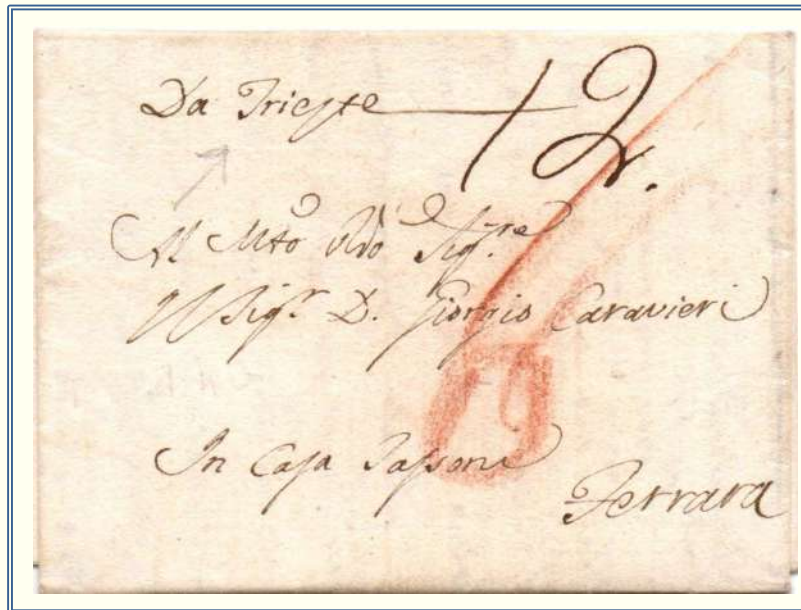 Da Trieste 12.
Al Mto Rdo Sigre
Il Sigr D. Giorgio Caravieri
In Casa
Ferrara